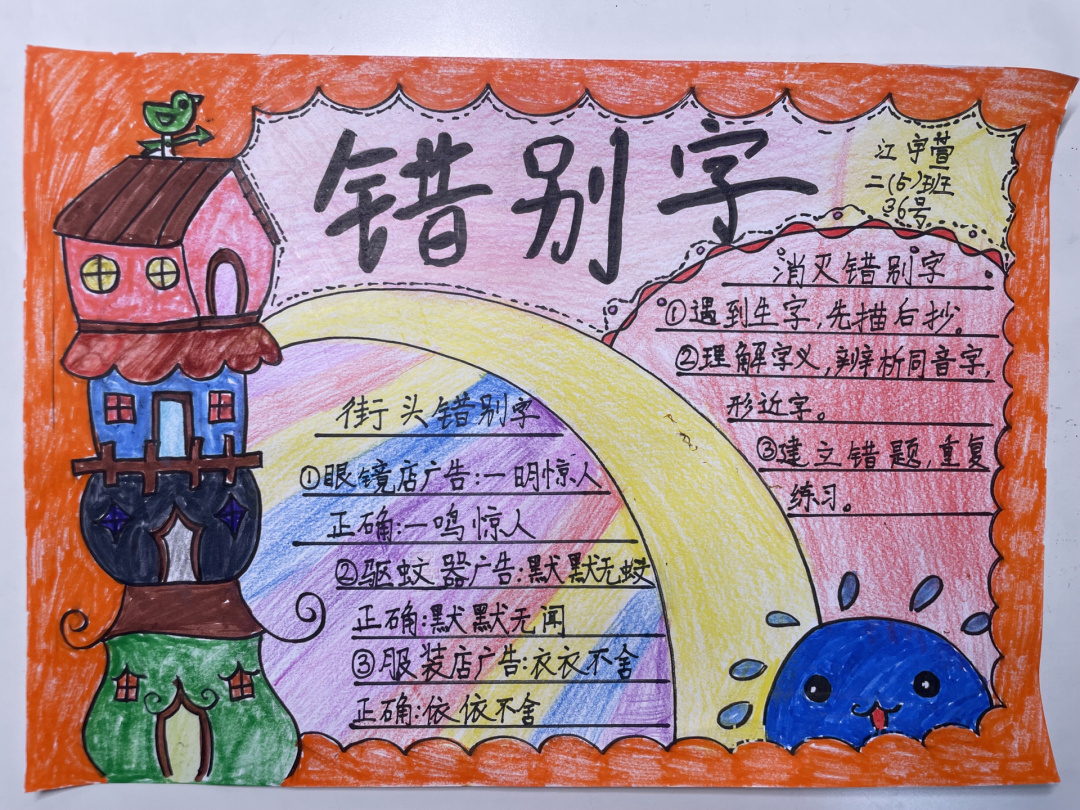 错别字
江宇萱
二(5)班
36号
消灭错别字
①遇到生字,先描后抄。
②理解字义,辨析同音字,
形近字。
③建立错题,重复
练习。
街头错别字
①眼镜店广告:一明惊人
正确:一鸣惊人
②驱蚊器广告:默默无蚊
正确:默默无闻
③服装店广告:衣衣不舍
正确:依依不舍